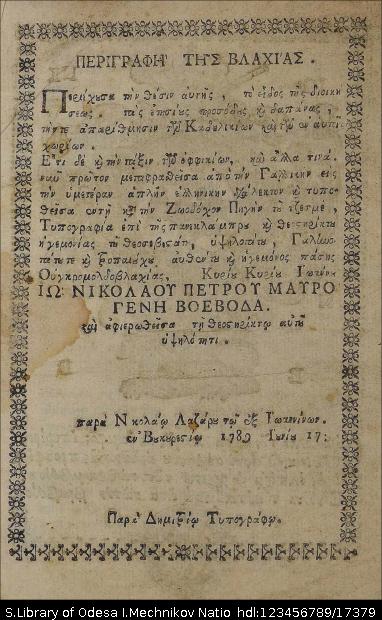 ΠΕΡΙΓΡΑΦΗ ΤΗΣ ΒΛΑΧΙΑΣ.
Περιέχουσα τὴν θέσιν αὐτῆς, τὸ εἶδος τῆς διοική
σεως. τὰς ἐτησίας προσόδους, καὶ δαπάνας,
τήντε ἀπαρίθμησιν τῶν Καδυλικίων καὶ τῶν ἐν αὐτῇ
χωρίων.
Ετι δὲ καὶ τὴν τάξιν τῶν ὀφφικίων, καὶ ἄλλα τινά.
νῦν πρῶτον μεταφρασθεῖσα ἀπὸ τὴν Γαλλικὴν εἰς
τὴν ἡμετέραν ἁπλῆν ἑλληνικὴν διάλεκτον καὶ τυπω
θεῖσα ἐν τῇ κατὰ τὴν Ζωοδόχον Πηγὴν τοῦ τζεσμὲ,
Τυπογραφίᾳ ἐπὶ τῆς πανεκλάμπρου καὶ Θεοστηρίκτου
ἡγεμονίας τοῦ Θεοσεβεστάτου, ὑψηλοτάτου, Γαληνο
τάτου καὶ αὐθέντου καὶ ἡγεμόνος πάσης
Οὑγκρομολδοβλαχίας, Κυρίου Κυρίου Ἰωάννου
ΙΩ: ΝΙΚΟΛΑΟΥ ΠΕΤΡΟΥ ΜΑΥΡΟ
ΓΕΝΗ ΒΟΕΒΟΔΑ.
καὶ ἀφιερωθεῖσα τῇ Θεοστηρίκτῳ αὐτοῦ
ὑψηλότητι.
παρὰ Νικολάου Λαζάρου τοῦ ἐξ Ἰωαννίνων.
ἐν Βουκουρεστίῳ 1789 Ἰουνίου 17:
Παρὰ Δημητρίῳ Τυπογράφῳ.
S.Library of Odesa I.Mechnikov Natio hdl:123456789/17379